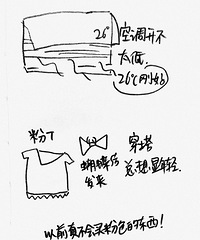 26°
空调开不
太低.
26℃刚好
粉丁
蝴蝶结
发夹
穿搭
总想显轻.
以前真不会买粉色的东西!